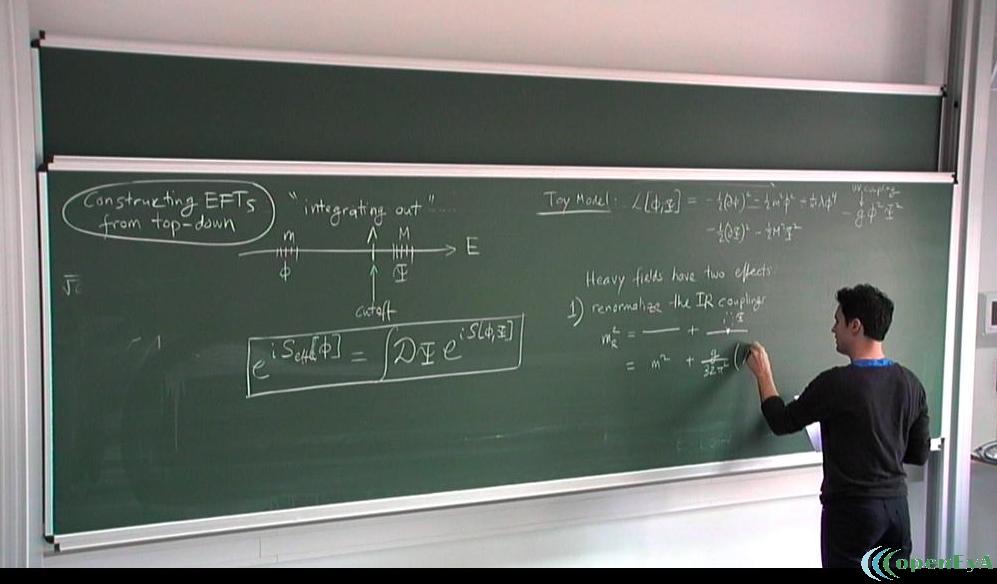 Constructing EFTs
from top-down
"integrating out"
m
M
E
ϕ
Φ
cutoff
e^{iS_eff[ϕ]} = ∫DΦ e^{iS[ϕ,Φ]}
Toy Model: L[ϕ,Φ] = -½(∂ϕ)² - ½m²ϕ² + ¼λϕ⁴
UV coupling
- gϕ²Φ²
-½(∂Φ)² - ½M²Φ²
Heavy fields have two effects:
1) renormalize the IR couplings
Φ
m_R² = +
= m² + g/32π² (
openEyA